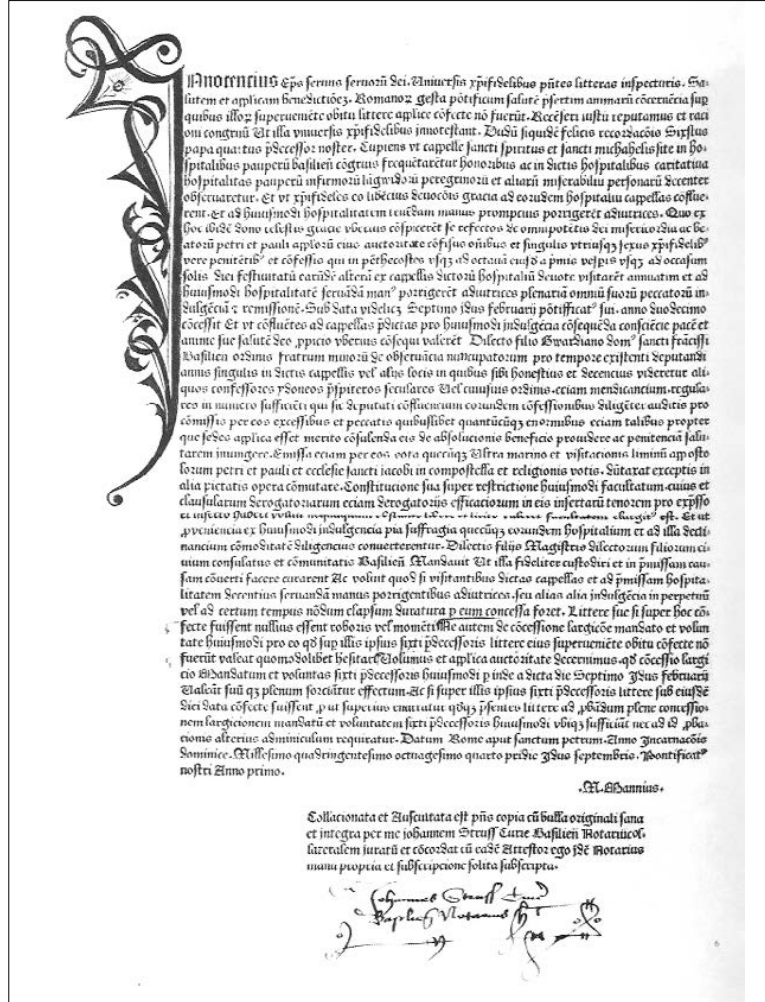 INnocencius Ep̄s seruus seruorū dei. Vniuersis xp̄ifidelibus pn̄tes litteras inspecturis. Sa-
lutem et applicam benedictiōeȝ. Romanoꝝ gesta pōtificum salutē p̄sertim animarū cōcernēcia sup
quibus illoꝝ superueniēte obitu littere applice cōfecte nō fuerūt. Recēseri iustū reputamus et raci
oni congruū Vt illa vniuersis xp̄ifidelibus innotescant. Dudū siquidē felicis recordacōis Sixstus
papa quartus p̄decessor noster. Cupiens vt cappelle sancti spiritus et sancti michahelis site in ho-
spitalibus pauperū basilien̄ cōgruis frequētarētur honoribus ac in dictis hospitalibus caritatiua
hospitalitas pauperū infirmorū lāgwidorū peregrinorū et aliarū miserabiliū personarū decenter
obseruaretur. Et vt xp̄ifideles eo libēcius deuocōis gracia ad eorundem hospitaliū cappellas cōflue-
rent. Et ad huiusmodi hospitalitatem tenēdam manus prompcius porrigerēt adiutrices. Quo ex
hoc ibidē dono celestis gracie vberius cōspicerēt se refectos de omnipotētis dei misericordia ac be-
atorū petri et pauli applorū eius auctoritate cōfisus om̄ibus et singulis vtriusqȝ sexus xp̄ifidelibꝰ
vere penitētibꝰ et cōfessis qui in pēthecostes vsqȝ ad octauā eiusdē a p̄mis vesp̄is vsqȝ ad occasum
solis diei festiuitatū earūdē alterā ex cappellis dictorū hospitaliū deuote visitarēt annuatim et ad
huiusmodi hospitalitatē seruādā manꝰ porrigerēt adiutrices plenariā omniū suorū peccatorū in-
dulgēciā ⁊ remissionē. Sub data videlicȝ Septimo jdus februarij pōtificatꝰ sui. anno duodecimo
cōcessit Et vt cōfluētes ad cappellas p̄dictas pro huiusmodi indulgēcia cōsequēda consciēcie pacē et
anime sue salutē deo ꝓpicio vberius cōsequi valerēt Dilecto filio Gwardiano domꝰ sancti frācisci
Basilien ordinis fratrum minorū de obseruācia nūcupatorum pro tempore existenti deputandi
annis singulis in dictis cappellis vel alijs locis in quibus sibi honestius et decencius videretur ali-
quos confessores ydoneos p̄spiteros seculares Vel cuiusuis ordinis. eciam mendicancium. regula-
res in numero sufficiēti qui sic deputati cōfluencium eorundem cōfessionibus diligēter auditis pro
cōmissis per eos excessibus et peccatis quibuslibet quantūcūqȝ enormibus eciam talibus propter
que sedes applica esset merito cōsulenda eis de absolucionis beneficio prouidere ac penitenciā salu-
tarem iniungere. Emissa eciam per eos vota quecūqȝ Vltra marino et visitationis liminū apposto
lorum petri et pauli et ecclesie sancti iacobi in compostella et religionis votis. dūtaxat exceptis in
alia pietatis opera cōmutare. Constitucione sua super restrictione huiusmodi facultatum. cuius et
clausularum derogatoriarum eciam derogatorijs efficaciorum in eis insertarū tenorem pro exp̄sso
est. Et ut
ꝓueniencia ex huiusmodi indulgencia pia suffragia quecūqȝ eorundem hospitalium et ad illa decli-
nancium cōmoditatē diligencius conuerterentur. Dilectis filijs Magistris dilectorum filiorum ci-
uium consulatus et cōmunitatis Basilien̄ Mandauit Vt illa fideliter custodiri et in p̄missam cau-
sam cōuerti facere curarent Ac voluit quod si visitantibus dictas cappellas et ad p̄missam hospita-
litatem decentius seruandā manus porrigentibus adiutrices. seu alias alia indulgēcia in perpetuū
vel ad certum tempus nōdum elapsum duratura p eum concessa foret. Littere sue si super hoc cō-
fecte fuissent nullius essent roboris vel momēti Ne autem de cōcessione largicōe mandato et volun
tate huiusmodi pro eo qd sup illis ipsius sixti p̄decessoris littere eius superueniēte obitu cōfecte nō
fuerūt valeat quomodolibet hesitari Volumus et applica auctoritate decernimus. qd cōcessio largi
cio Mandatum et voluntas sixti p̄decessoris huiusmodi p inde a dicta die Septimo Jdus februarij
Valeāt suū qȝ plenum sorciātur effectum. Ac si super illis ipsius sixti p̄decessoris littere sub eiusdē
diei data cōfecte fuissent ꝓ ut superius enarratur qdqȝ p̄sentes littere ad ꝓbādum plene concessio-
nem largicionem mandatū et voluntatem sixti p̄decessoris huiusmodi vbiqȝ sufficiāt nec ad id ꝓba-
cionis alterius adminiculum requiratur. Datum Rome aput sanctum petrum. Anno Jncarnacōis
dominice. Millesimo quadringentesimo octuagesimo quarto pridie Jdus septembris. Pontificatꝰ
nostri Anno primo.
.M. Mannius.
Collacionata et Auscultata est pn̄s copia cū bulla originali sana
et integra per me johannem Struss Curie Basilien̄ Notariū col-
lateralem juratū et cōcordat cū eadē Attestor ego jdē Notarius
manu propria et subscripcione solita subscripta.
Johannes Struss Curie
Basilien̄ Notarius